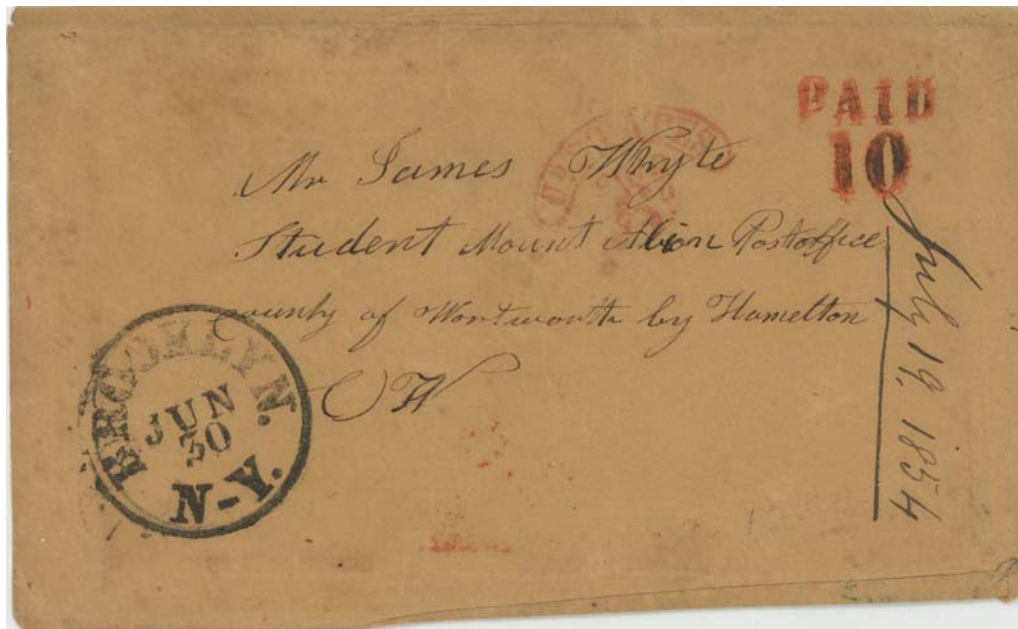 PAID
10
Mr James Whyte
Student Mount Albion Postoffice
county of Wentworth by Hamelton
CW
BROOKLYN.
JUN
30
N-Y.
July 19, 1854